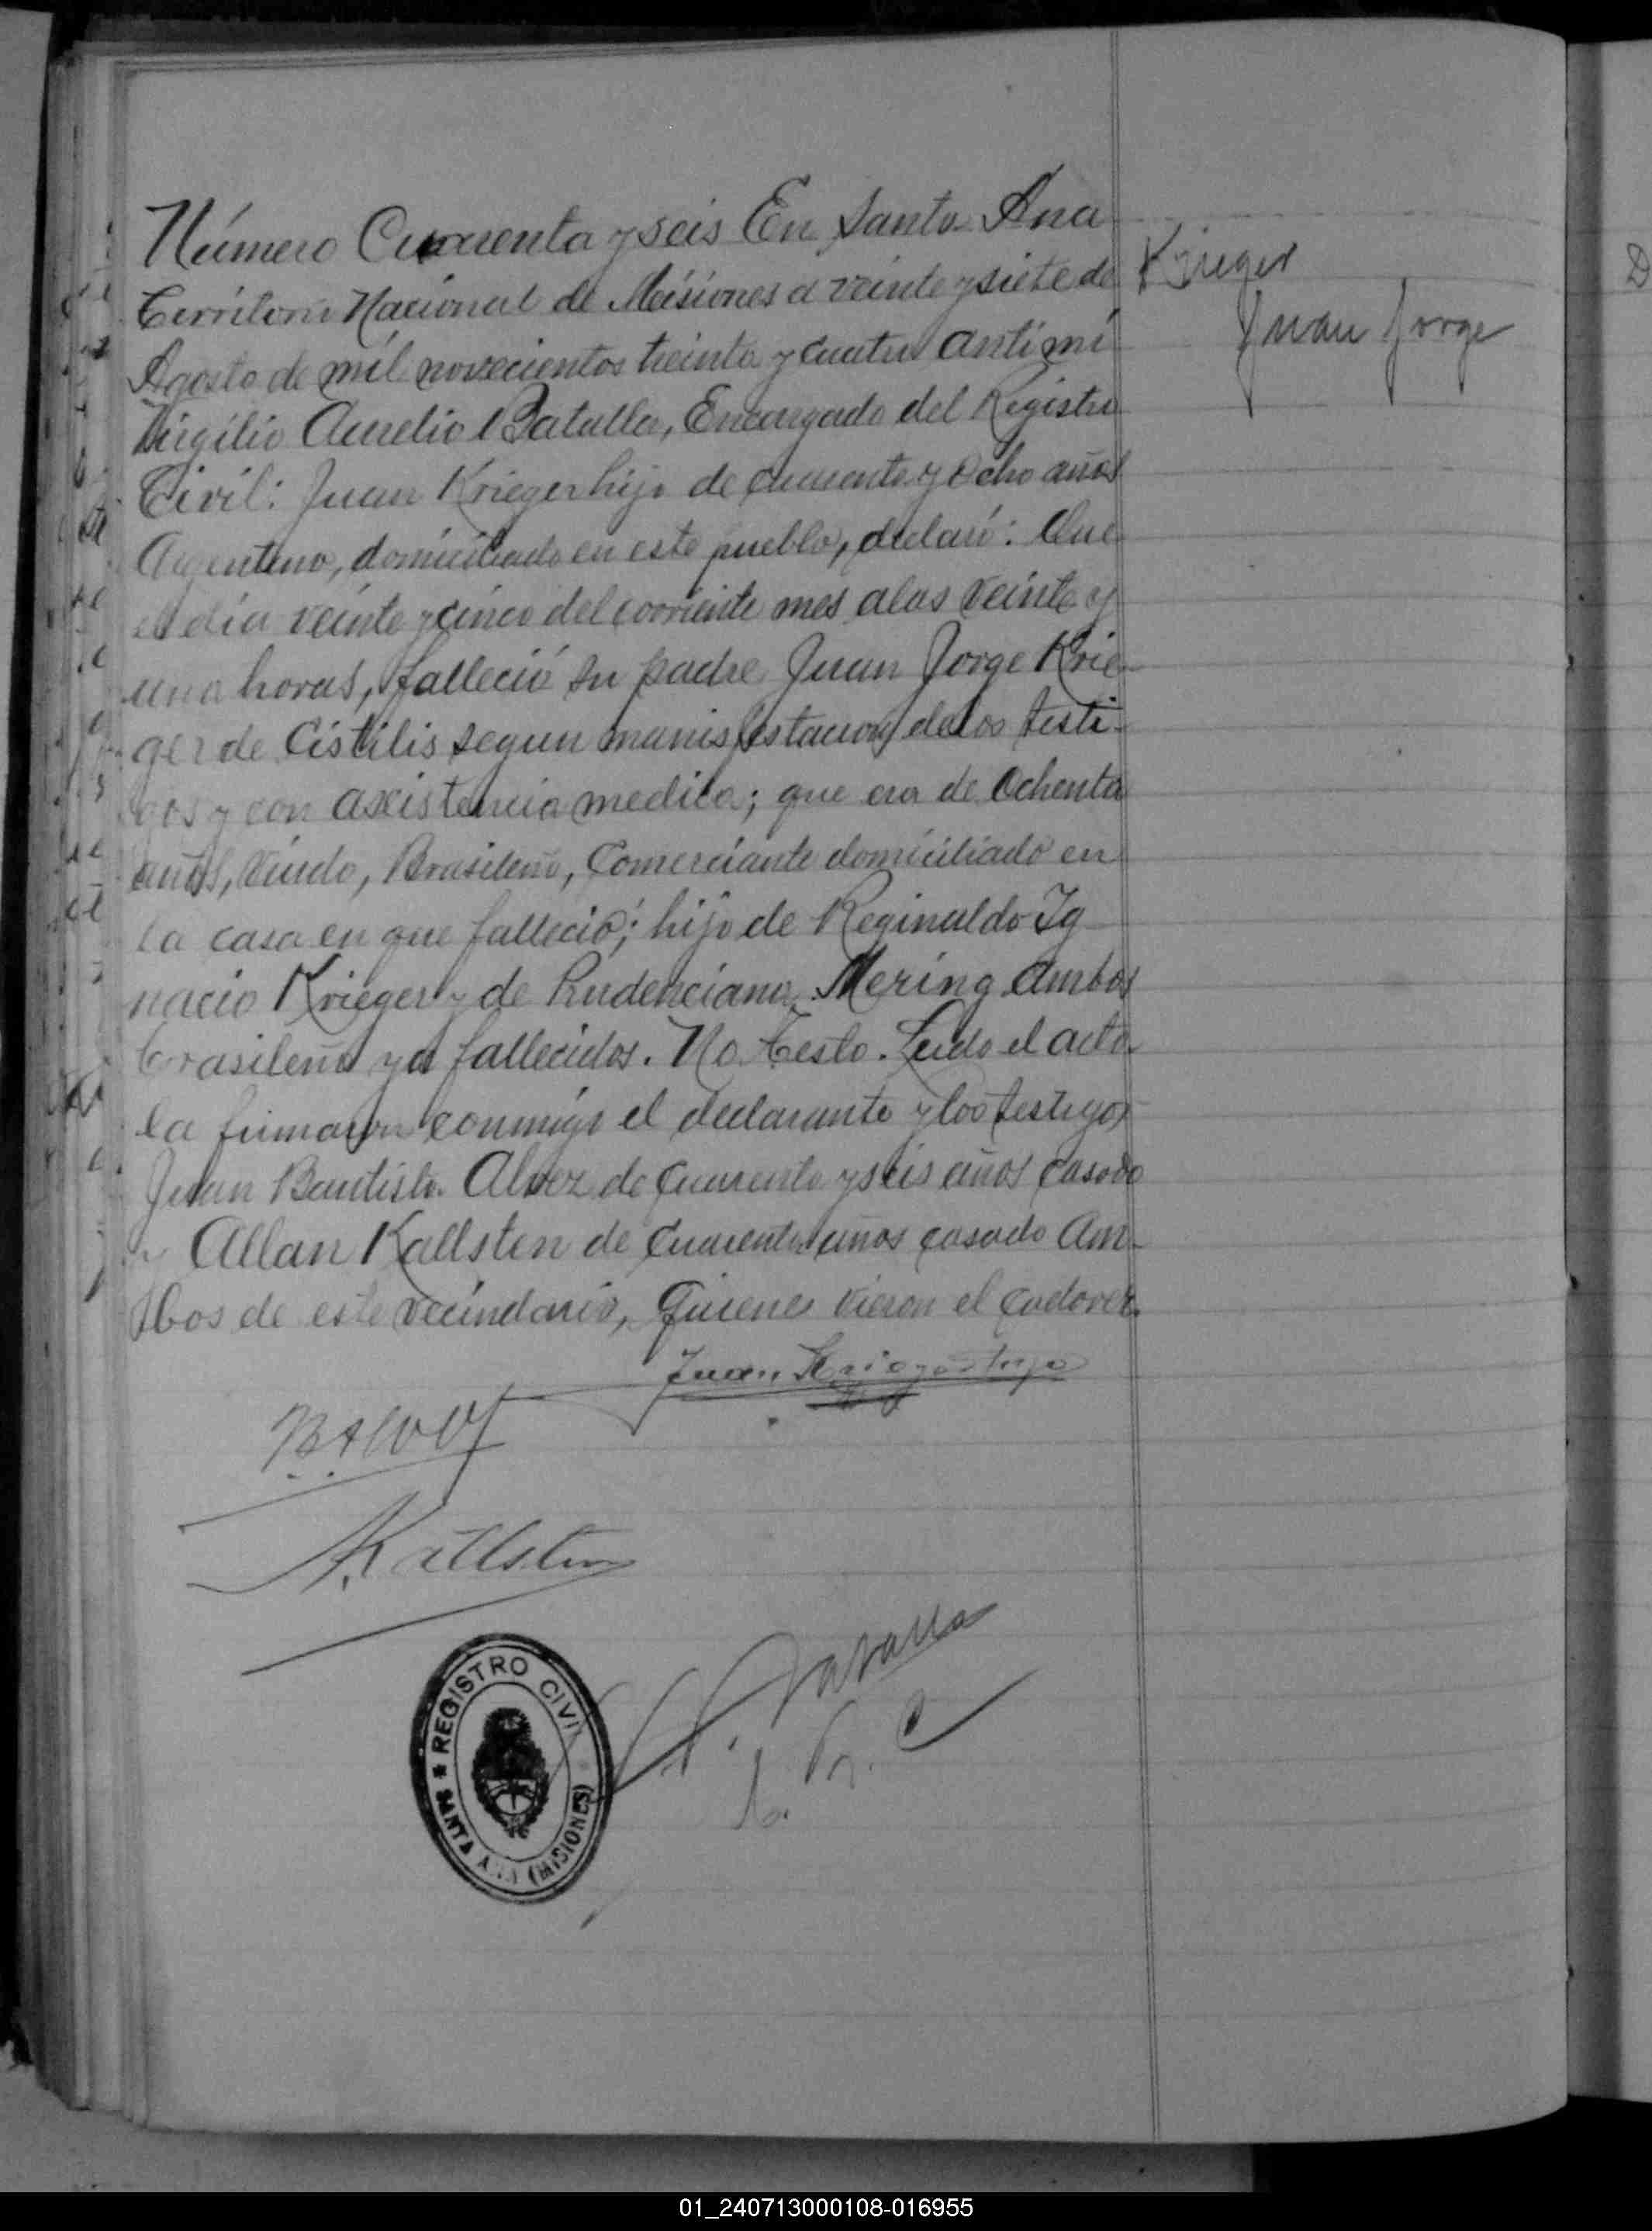 Número Cuarenta y seis En Santa Ana
Krieger
Juan Jorge
Territorio Nacional de Misiones a veinte y siete de
Agosto de mil novecientos treinta y cuatro anti mi
Virgilio Aurelio Batalla, Encargado del Registro
Civil: Juan Krieger hijo de cuarenta y ocho años
Argentino, domiciliado en este pueblo, declaró: Que
el dia veinte y cinco del corriente mes alas veinte y
una horas, falleció su padre Juan Jorge Krie-
ger de Cistilis segun manisfestacion delos testi-
gos y con axistencia medica; que era de ochenta
años, viudo, Brasileño, Comerciante domiciliado en
la casa en que falleció; hijo de Reginaldo Ig
nacio Krieger y de Pudenciana Mering ambos
brasileño ya fallecidos. No testo. Leido el acta
la firmaron conmigo el declarante y los testigos
Juan Bautista Alvez de cuarenta y seis años casado
y Allan Kallsten de cuarenta años casado Am-
bos de este vecindario, quienes vieron el cadaver.
Juan Krieger hijo
B Alvez
A. Kallsten
V. A. Batalla
REGISTRO CIVIL
SANTA ANA (MISIONES)
01_240713000108-016955